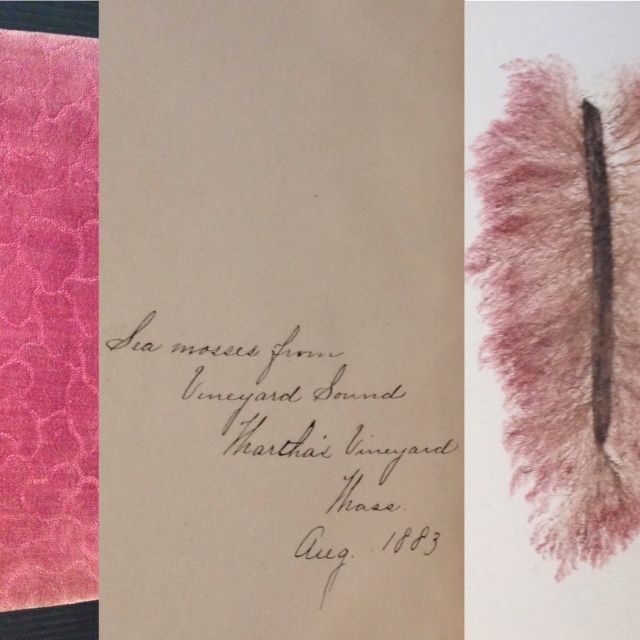 Sea mosses from
Vineyard Sound
Martha's Vineyard
Mass.
Aug. 1883